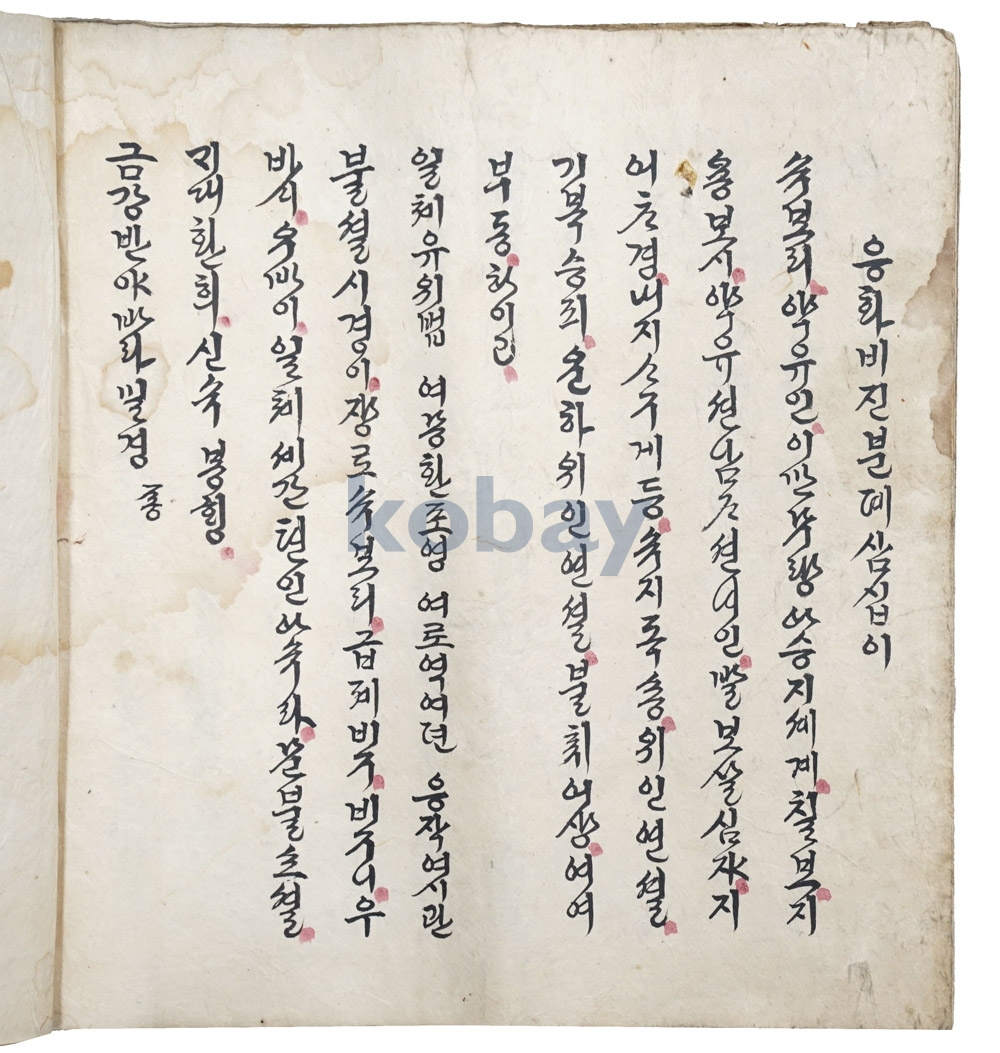 응화비진분뎨삼십이
슈보리약유인이만무량아승지셰계칠보지
용보시약유션남ᄌᆞ션여인발보살심쟈지
어ᄎᆞ경내지ᄉᆞ구게등슈지독숑위인연셜
기복승피운하위인연셜불취어샹여여
부동하이고
일체유위법 여몽환포영 여로역여뎐 응작여시관
불셜시경이쟝로슈보리급제비구비구니우
바ᄉᆡ우바이일체셰간텬인아슈라문불소셜
ᄀᆡ대환희신슈봉ᄒᆡᆼ
금강반야바라밀경 죵
kobay